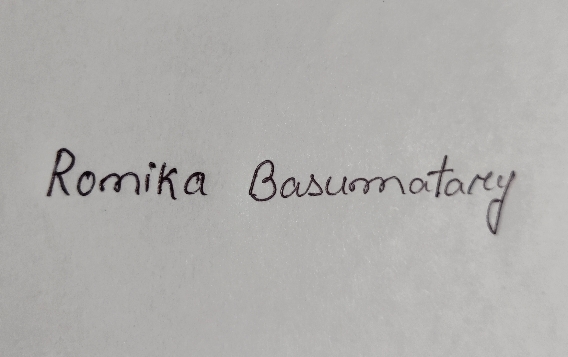 Romika Basumatary